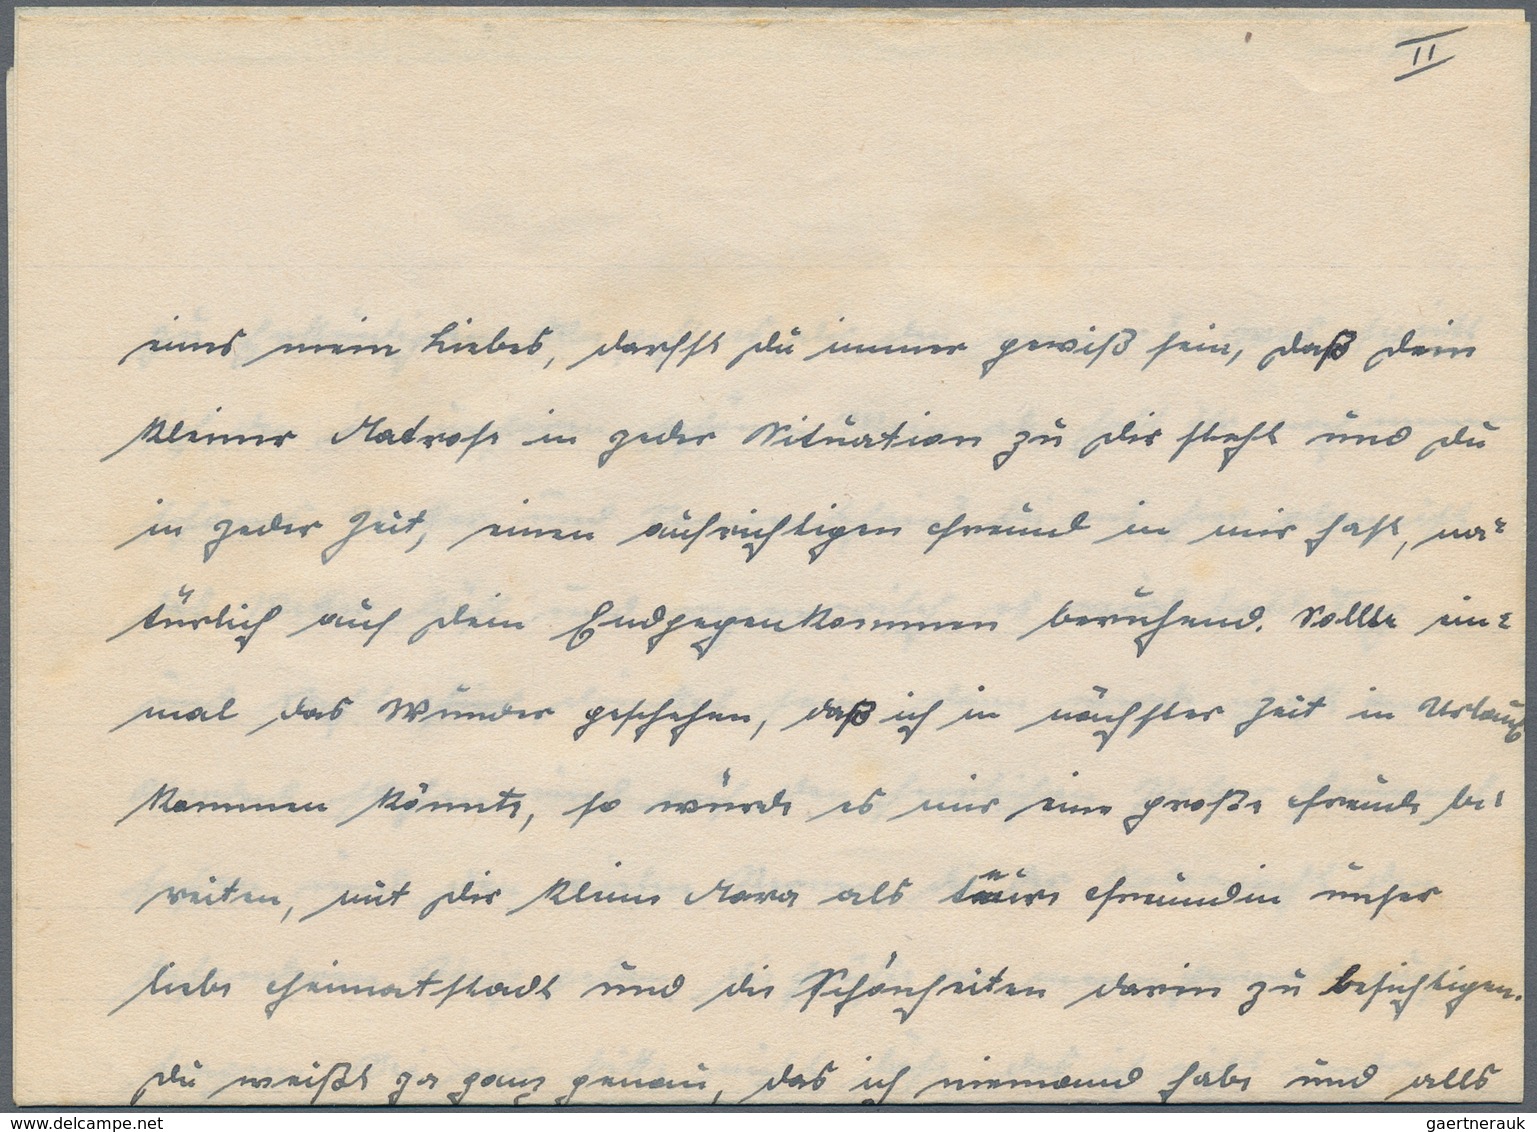 II
eines mein Liebes, darfst du immer gewiß sein, daß dein
kleiner Matrose in jeder Situation zu dir steht und du
in jeder Zeit, einen aufrichtigen Freund in mir hast, na=
türlich auf dein Endgegenkommen beruhend. Sollte ein=
mal das Wunder geschehen, daß ich in nächster Zeit in Urlaub
kommen könnte, so würde es mir eine große Freude be=
reiten, mit dir kleine Mara als teure Freundin unser
liebe Heimatstadt und die Schönheiten darin zu besichtigen.
du weißt ja ganz genau, das ich niemand habe und alls
www.delcampe.net
gaertnerauk